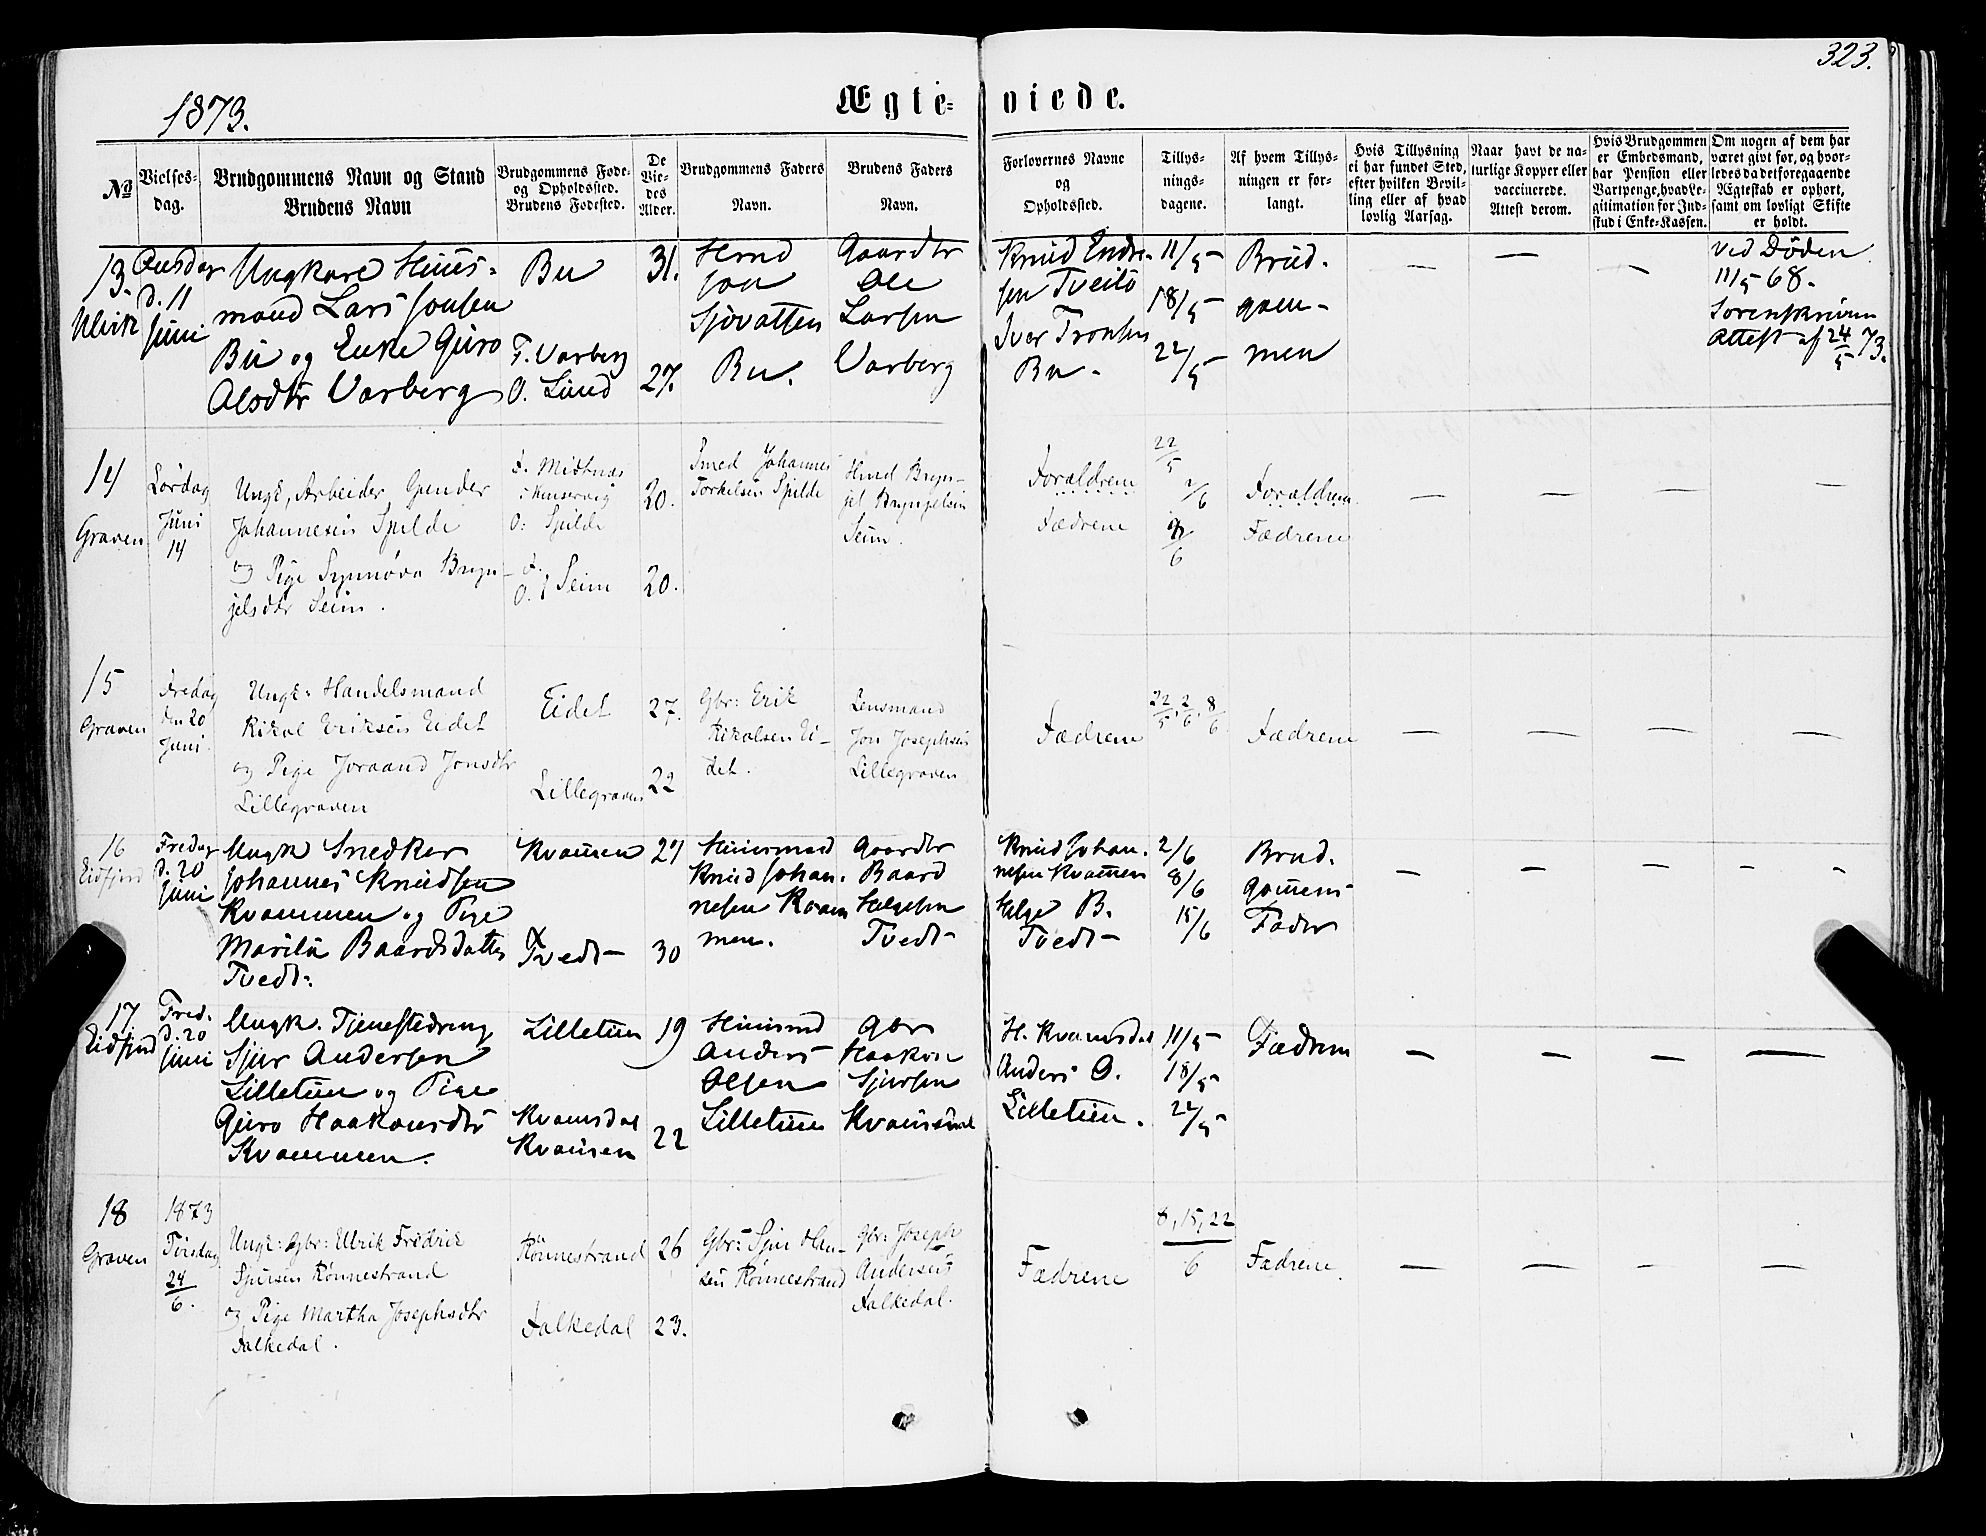 323.
1873.
Ægte- viede.
No
Vielses-
dag.
Brudgommens Navn og Stand
Brudens Navn
Brudgommens Føde-
og Opholdssted.
Brudens Fødested.
De
Vie-
des
Alder.
Brudgommens Faders
Navn.
Brudens Faders
Navn.
Forlovernes Navne
og
Opholdssted.
Tillys-
nings-
dagene.
Af hvem Tillys-
ningen er for-
langt.
Hvis Tillysning
ei har fundet Sted,
efter hvilken Bevil-
ling eller af hvad
lovlig Aarsag.
Naar havt de na-
turlige Kopper eller
vaccinerede.
Attest derom.
Hvis Brudgommen
er Embedsmand,
har Pension eller
Vartpenge, hvad Le-
gitimation for Ind-
skud i Enke-Kassen.
Om nogen af dem har
været givt før, og hvor-
ledes da det foregaaende
Ægteskab er ophørt,
samt om lovligt Skifte
er holdt.
13.
Ulvik
Onsdag
d. 11
Juni
Ungkarl Huus-
mand Lars Jonsen
Bu og Enke Guro
Olsdtr Varberg
Bu
F. Varberg
O. Lund
31.
27.
Hmd
Jon
Sjovatsen
Bu.
Gaardbr
Ole
Larsen
Varberg
Knud Endre-
sen Tveito
Iver Trondsen
Bu -
11/5
18/5
22/5
Brud-
gom-
men
— — —
ved Døden
11/5 68.
Sorenskriveren
Attest af 24/5 73.
14
Graven
Lørdag
Juni
14
Ungk, Arbeider, Gunder
Johannesen Spilde
og Pige Synnøva Bryn-
jelsdtr Seim.
F. Midtnæs
i Kinservig
O: Spilde
F.
O. } Seim
20.
20.
Smed Johannes
Torkelsen Spilde
Hmd Bryn-
jel Brynjelsen
Seim.
Forældrene
Fædrene
22/5
2/6
8/6
Forældrene
Fædrene
— — — —
15
Graven
Fredag
den 20
Juni.
Ungk: Handelsmand
Nikol Eriksen Eidet
og Pige Joraand Jonsdtr
Lillegraven
Eidet
Lillegraven
27.
22
Gbr: Erik
Nikolsen Ei-
det.
Lensmand
Jon Josephsen
Lillegraven
Fædrene
22/5, 2/6, 8/6
Fædrene
— — — —
16
Eidfjord
Fredag
d. 20
Juni
Ungk Snedker
Johannes Knudsen
Kvammen og Pige
Marita Baardsdatter
Tvedt-
Kvammen
Tvedt-
27
30
Huusmd
Knud Johan-
nesen Kvam
men.
Gaardbr
Baard
Helgesen
Tvedt-
Knud Johan-
nesen Kvammen
Helge B.
Tvedt-
2/6
8/6
15/6
Brud-
gomens
Fader
— — — — -
17
Eidfjord
Fred.
d. 20
Juni
Ungk. Tjenestedreng
Sjur Andersen
Lilletun og Pige
Guro Haakonsdtr
Kvammen.
Lilletun
Kvamsdal
Kvammen
19
22
Huusmd
Anders
Olsen
Lilletun
Gbr
Haakon
Sjursen
Kvamsdal
H. Kvamsdal
Anders O.
Lilletun.
11/5
18/5
22/5
Fædrene
— — — —
18
Graven
1873
Torsdag
24/6.
Ungk: Gbr: Ulrik Fredrik
Sjursen Rönnestrand
og Pige Martha Josephsdtr
Falkedal.
Rönnestrand
Falkedal
26
23.
Gbr: Sjur Han-
sen Rönnestrand
Gbr: Joseph
Andersen
Falkedal.
Fædrene
8, 15, 22
6
Fædrene
— — — —